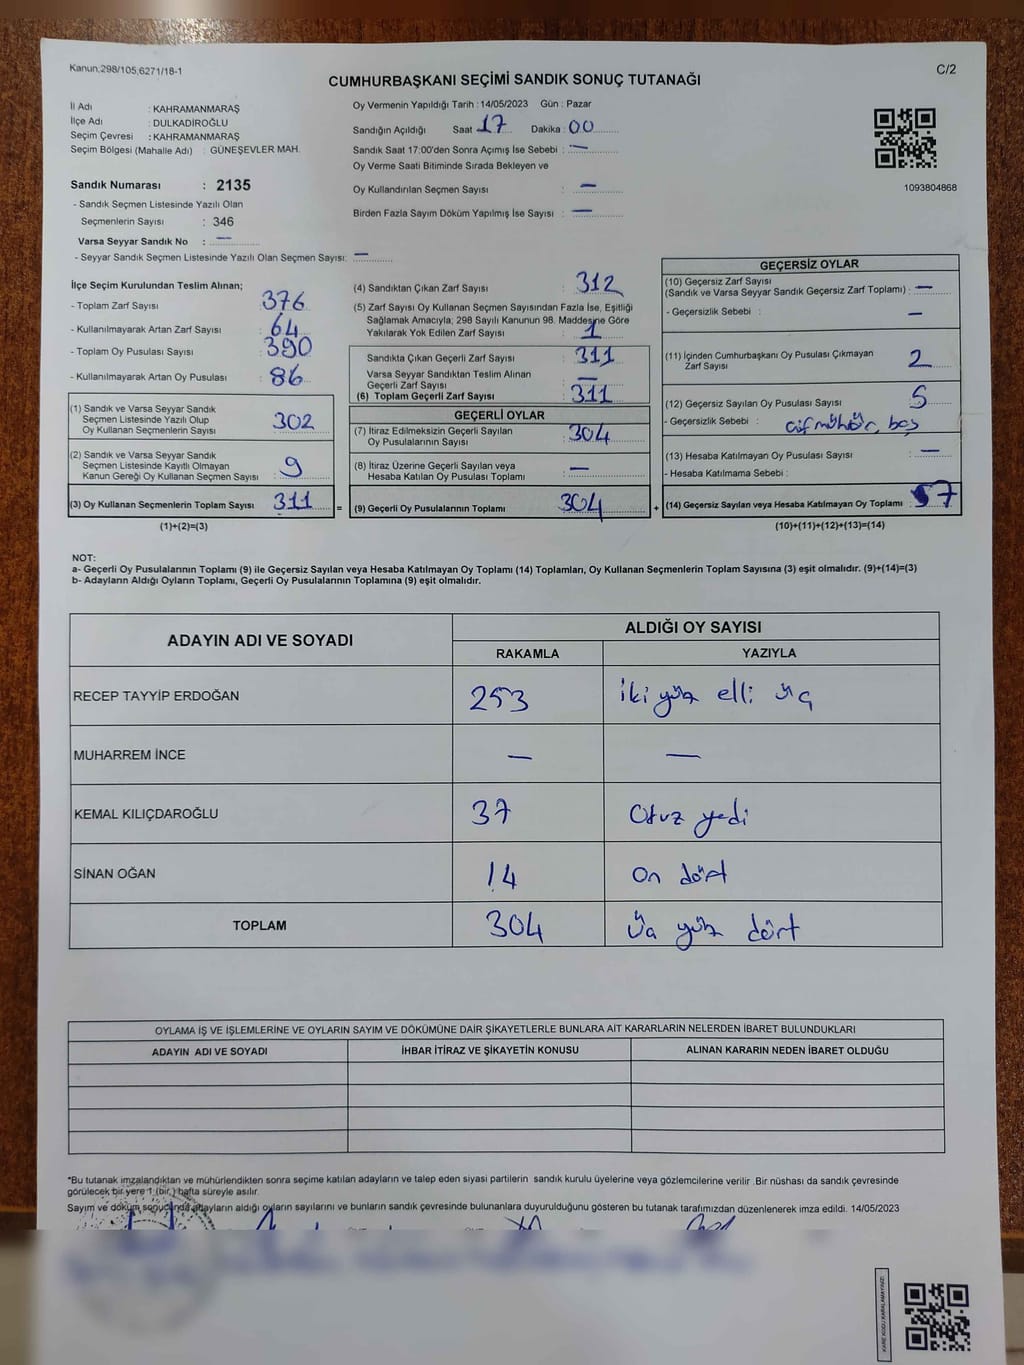 Kanun;298/105;6271/18-1
C/2
CUMHURBAŞKANI SEÇİMİ SANDIK SONUÇ TUTANAĞI
İl Adı : KAHRAMANMARAŞ
İlçe Adı : DULKADİROĞLU
Seçim Çevresi : KAHRAMANMARAŞ
Seçim Bölgesi (Mahalle Adı) : GÜNEŞEVLER MAH.
Sandık Numarası : 2135
- Sandık Seçmen Listesinde Yazılı Olan
Seçmenlerin Sayısı : 346
Varsa Seyyar Sandık No : —
- Seyyar Sandık Seçmen Listesinde Yazılı Olan Seçmen Sayısı: —
Oy Vermenin Yapıldığı Tarih : 14/05/2023 Gün : Pazar
Sandığın Açıldığı Saat 17 Dakika : 00
Sandık Saat 17:00'den Sonra Açımış İse Sebebi : —
Oy Verme Saati Bitiminde Sırada Bekleyen ve
Oy Kullandırılan Seçmen Sayısı : —
Birden Fazla Sayım Döküm Yapılmış İse Sayısı : —
1093804868
İlçe Seçim Kurulundan Teslim Alınan;
- Toplam Zarf Sayısı : 376
- Kullanılmayarak Artan Zarf Sayısı : 64
- Toplam Oy Pusulası Sayısı : 390
- Kullanılmayarak Artan Oy Pusulası : 86
(1) Sandık ve Varsa Seyyar Sandık
Seçmen Listesinde Yazılı Olup
Oy Kullanan Seçmenlerin Sayısı : 302
(2) Sandık ve Varsa Seyyar Sandık
Seçmen Listesinde Kayıtlı Olmayan
Kanun Gereği Oy Kullanan Seçmen Sayısı : 9
(3) Oy Kullanan Seçmenlerin Toplam Sayısı : 311
(1)+(2)=(3)
(4) Sandıktan Çıkan Zarf Sayısı : 312
(5) Zarf Sayısı Oy Kullanan Seçmen Sayısından Fazla İse, Eşitliği
Sağlamak Amacıyla; 298 Sayılı Kanunun 98. Maddesine Göre
Yakılarak Yok Edilen Zarf Sayısı : 1
Sandıkta Çıkan Geçerli Zarf Sayısı : 311
Varsa Seyyar Sandıktan Teslim Alınan
Geçerli Zarf Sayısı : —
(6) Toplam Geçerli Zarf Sayısı : 311
GEÇERLİ OYLAR
(7) İtiraz Edilmeksizin Geçerli Sayılan
Oy Pusulalarının Sayısı : 304
(8) İtiraz Üzerine Geçerli Sayılan veya
Hesaba Katılan Oy Pusulası Toplamı : —
= (9) Geçerli Oy Pusulalarının Toplamı : 304 +
GEÇERSİZ OYLAR
(10) Geçersiz Zarf Sayısı
(Sandık ve Varsa Seyyar Sandık Geçersiz Zarf Toplamı) : —
- Geçersizlik Sebebi : —
(11) İçinden Cumhurbaşkanı Oy Pusulası Çıkmayan
Zarf Sayısı : 2
(12) Geçersiz Sayılan Oy Pusulası Sayısı : 5
- Geçersizlik Sebebi : çift mühür, boş
(13) Hesaba Katılmayan Oy Pusulası Sayısı : —
- Hesaba Katılmama Sebebi :
(14) Geçersiz Sayılan veya Hesaba Katılmayan Oy Toplamı : 7
(10)+(11)+(12)+(13)=(14)
NOT:
a- Geçerli Oy Pusulalarının Toplamı (9) ile Geçersiz Sayılan veya Hesaba Katılmayan Oy Toplamı (14) Toplamları, Oy Kullanan Seçmenlerin Toplam Sayısına (3) eşit olmalıdır. (9)+(14)=(3)
b- Adayların Aldığı Oyların Toplamı, Geçerli Oy Pusulalarının Toplamına (9) eşit olmalıdır.
ADAYIN ADI VE SOYADI
ALDIĞI OY SAYISI
RAKAMLA YAZIYLA
RECEP TAYYİP ERDOĞAN 253 iki yüz elli üç
MUHARREM İNCE — —
KEMAL KILIÇDAROĞLU 37 Otuz yedi
SİNAN OĞAN 14 On dört
TOPLAM 304 Üç yüz dört
OYLAMA İŞ VE İŞLEMLERİNE VE OYLARIN SAYIM VE DÖKÜMÜNE DAİR ŞİKAYETLERLE BUNLARA AİT KARARLARIN NELERDEN İBARET BULUNDUKLARI
ADAYIN ADI VE SOYADI İHBAR İTİRAZ VE ŞİKAYETİN KONUSU ALINAN KARARIN NEDEN İBARET OLDUĞU
*Bu tutanak imzalandıktan ve mühürlendikten sonra seçime katılan adayların ve talep eden siyasi partilerin sandık kurulu üyelerine veya gözlemcilerine verilir .Bir nüshası da sandık çevresinde
görülecek bir yere 1 (bir ) hafta süreyle asılır.
Sayım ve döküm sonucunda adayların aldığı oyların sayılarını ve bunların sandık çevresinde bulunanlara duyurulduğunu gösteren bu tutanak tarafımızdan düzenlenerek imza edildi. 14/05/2023
KARE KODU KARALAMAYINIZ!